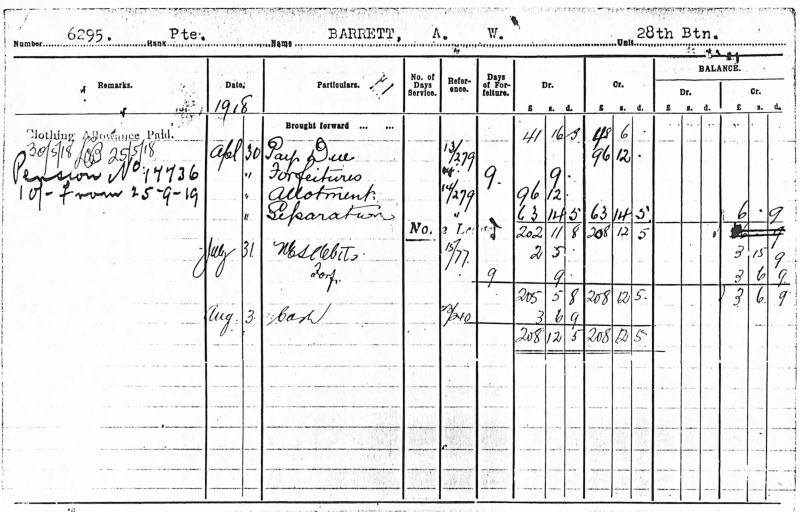 Number 6295. Rank Pte. Name BARRETT, A. W. Unit 28th Btn.
Remarks. Date. Particulars. No. of Days Service. Reference. Days of Forfeiture. Dr. Cr. BALANCE.
Dr. Cr.
£ s. d. £ s. d. £ s. d. £ s. d.
1918
Brought forward ... ... 41 16 3 48 6
Clothing Allowance Paid.
30/5/18 25/5/18
Apl 30 Pay Due 13/279 96 12
Pension No. 17736
" Forfeitures 9 9
10/- from 25-9-19
" Allotment 14/279 96 12
" Separation " 63 14 5 63 14 5 6 . 9
No. 202 11 8 208 12 5
July 31 Debits 15/77 2 5 3 15 9
Forf. 9 9 3 6 9
205 5 8 208 12 5 3 6 9
Aug. 3 Cash 3 6 9
208 12 5 208 12 5